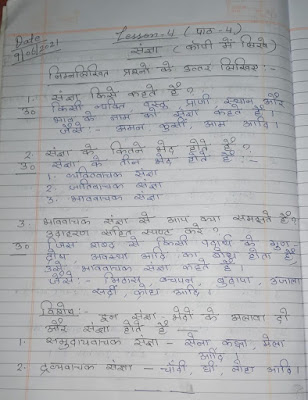 Date
9/06/2021
Lesson-4 (पाठ-4)
संज्ञा (कॉपी में लिखे)
निम्नलिखित प्रश्नों के उत्तर लिखिए :-
1. संज्ञा किसे कहते हैं?
उ० किसी व्यक्ति, वस्तु, प्राणी, स्थान और
भाव के नाम को संज्ञा कहते हैं।
जैसे :- अमन, कुर्सी, आम आदि।
2. संज्ञा के कितने भेद होते हैं?
उ० संज्ञा के तीन भेद होते हैं :-
1. व्यक्तिवाचक संज्ञा
2. जातिवाचक संज्ञा
3. भाववाचक संज्ञा
3. भाववाचक संज्ञा से आप क्या समझते हैं?
उदाहरण सहित स्पष्ट करे?
उ० जिस शब्द से किसी पदार्थ के गुण,
दोष, अवस्था आदि का बोध होता है,
उसे भाववाचक संज्ञा कहते हैं।
जैसे :- मिठास, बचपन, बुढ़ापा, उजाला
सर्दी, क्रोध आदि।
विशेष :- इन संज्ञा भेदों के अलावा दो
और संज्ञा होते हैं -
1. समुदायवाचक संज्ञा - सेना, कक्षा, मेला
आदि।
2. द्रव्यवाचक संज्ञा - चाँदी, घी, लोहा आदि।